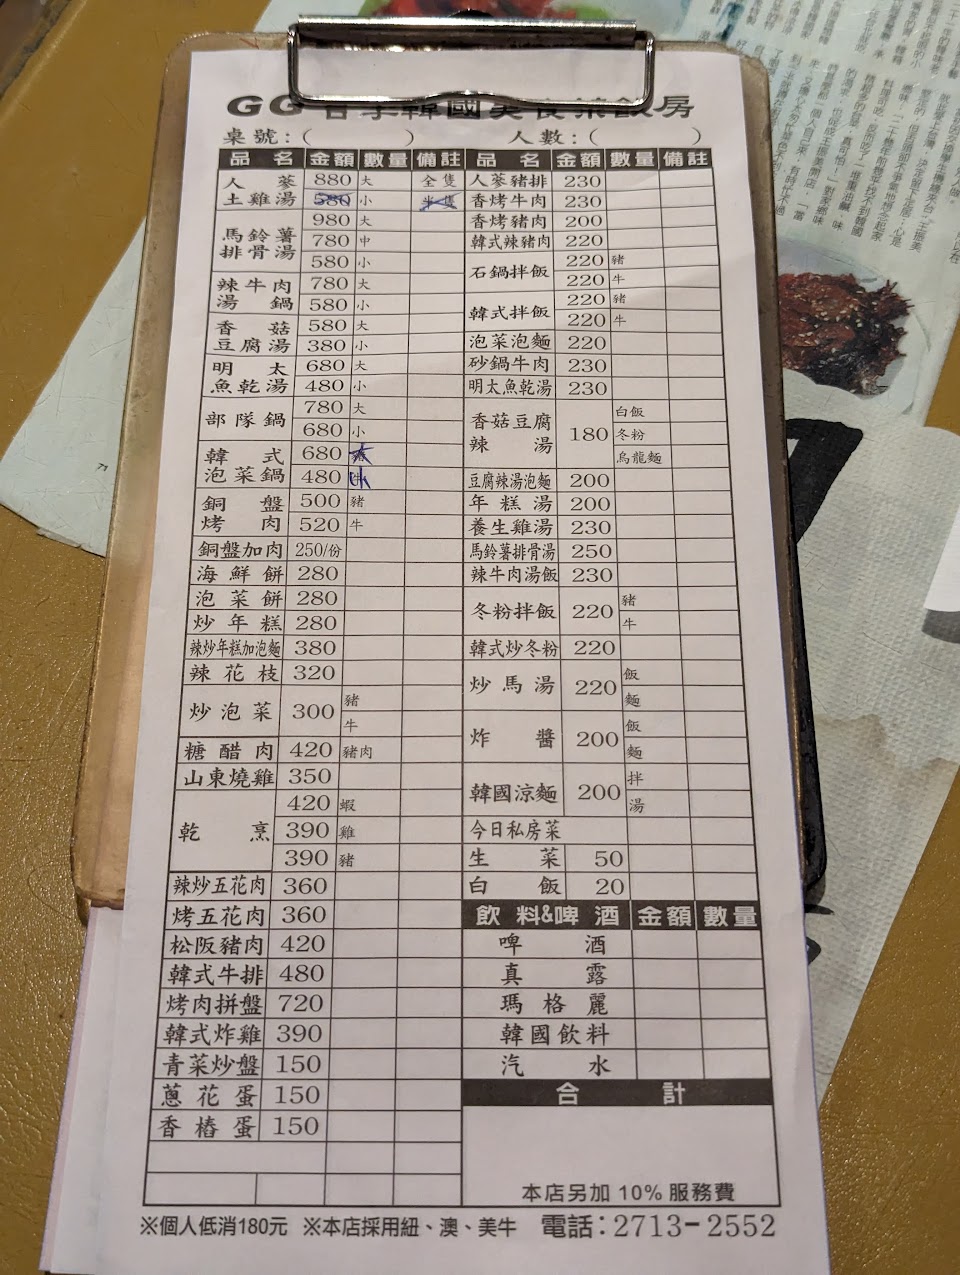 GG 韓國美食餐飲房
桌號：( ) 人數：( )
品名 金額 數量 備註
人蔘土雞湯 880 大 全隻
580 小 半隻
馬鈴薯排骨湯 980 大
780 中
580 小
辣牛肉湯鍋 780 大
580 小
香菇豆腐湯 580 大
380 小
明太魚乾湯 680 大
480 小
部隊鍋 780 大
680 小
韓式泡菜鍋 680 大
480 小
銅盤烤肉 500 豬
520 牛
銅盤加肉 250/份
海鮮餅 280
泡菜餅 280
炒年糕 280
辣炒年糕加泡麵 380
辣花枝 320
炒泡菜 300 豬
牛
糖醋肉 420 豬肉
山東燒雞 350
乾烹 420 蝦
390 雞
390 豬
辣炒五花肉 360
烤五花肉 360
松阪豬肉 420
韓式牛排 480
烤肉拼盤 720
韓式炸雞 390
青菜炒盤 150
蔥花蛋 150
香椿蛋 150
品名 金額 數量 備註
人蔘豬排 230
香烤牛肉 230
香烤豬肉 200
韓式辣豬肉 220
石鍋拌飯 220 豬
220 牛
韓式拌飯 220 豬
220 牛
泡菜泡麵 220
砂鍋牛肉 230
明太魚乾湯 230
香菇豆腐辣湯 180 白飯
冬粉
烏龍麵
豆腐辣湯泡麵 200
年糕湯 200
養生雞湯 230
馬鈴薯排骨湯 250
辣牛肉湯飯 230
冬粉拌飯 220 豬
牛
韓式炒冬粉 220
炒馬湯 220 飯
麵
炸醬 200 飯
麵
韓國涼麵 200 拌
湯
今日私房菜
生菜 50
白飯 20
飲料&啤酒 金額 數量
啤酒
真露
瑪格麗
韓國飲料
汽水
合計
本店另加10%服務費
※個人低消180元 ※本店採用紐、澳、美牛 電話：2713-2552